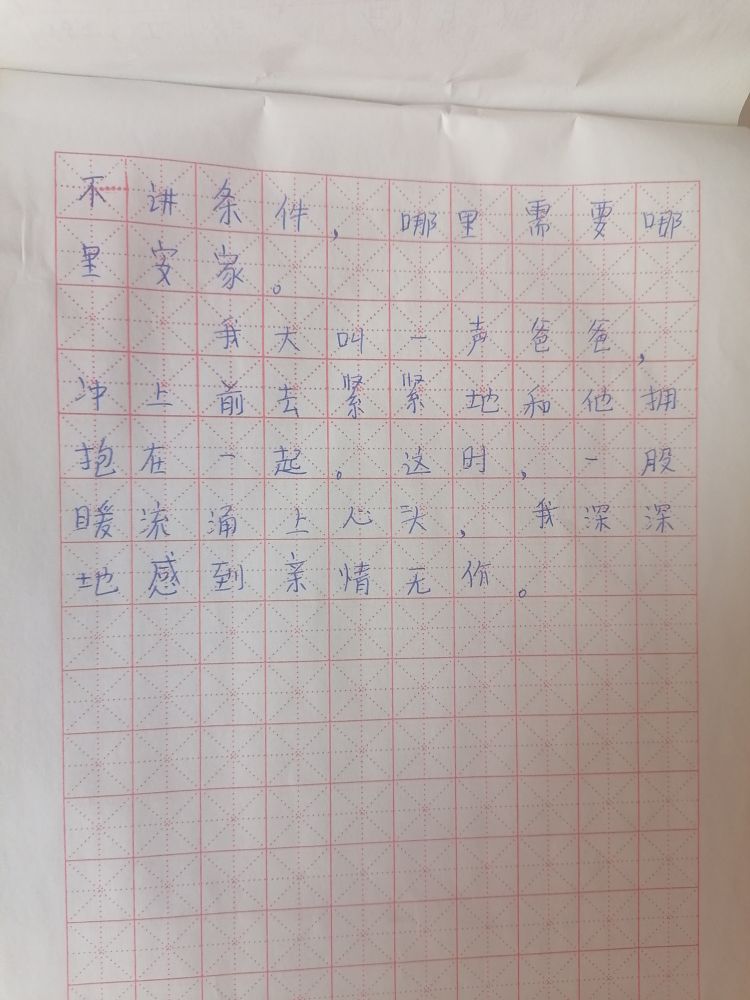 不讲条件，哪里需要哪
里安家。
我大叫一声爸爸，
冲上前去紧紧地和他拥
抱在一起。这时，一股
暖流涌上心头，我深深
地感到亲情无价。